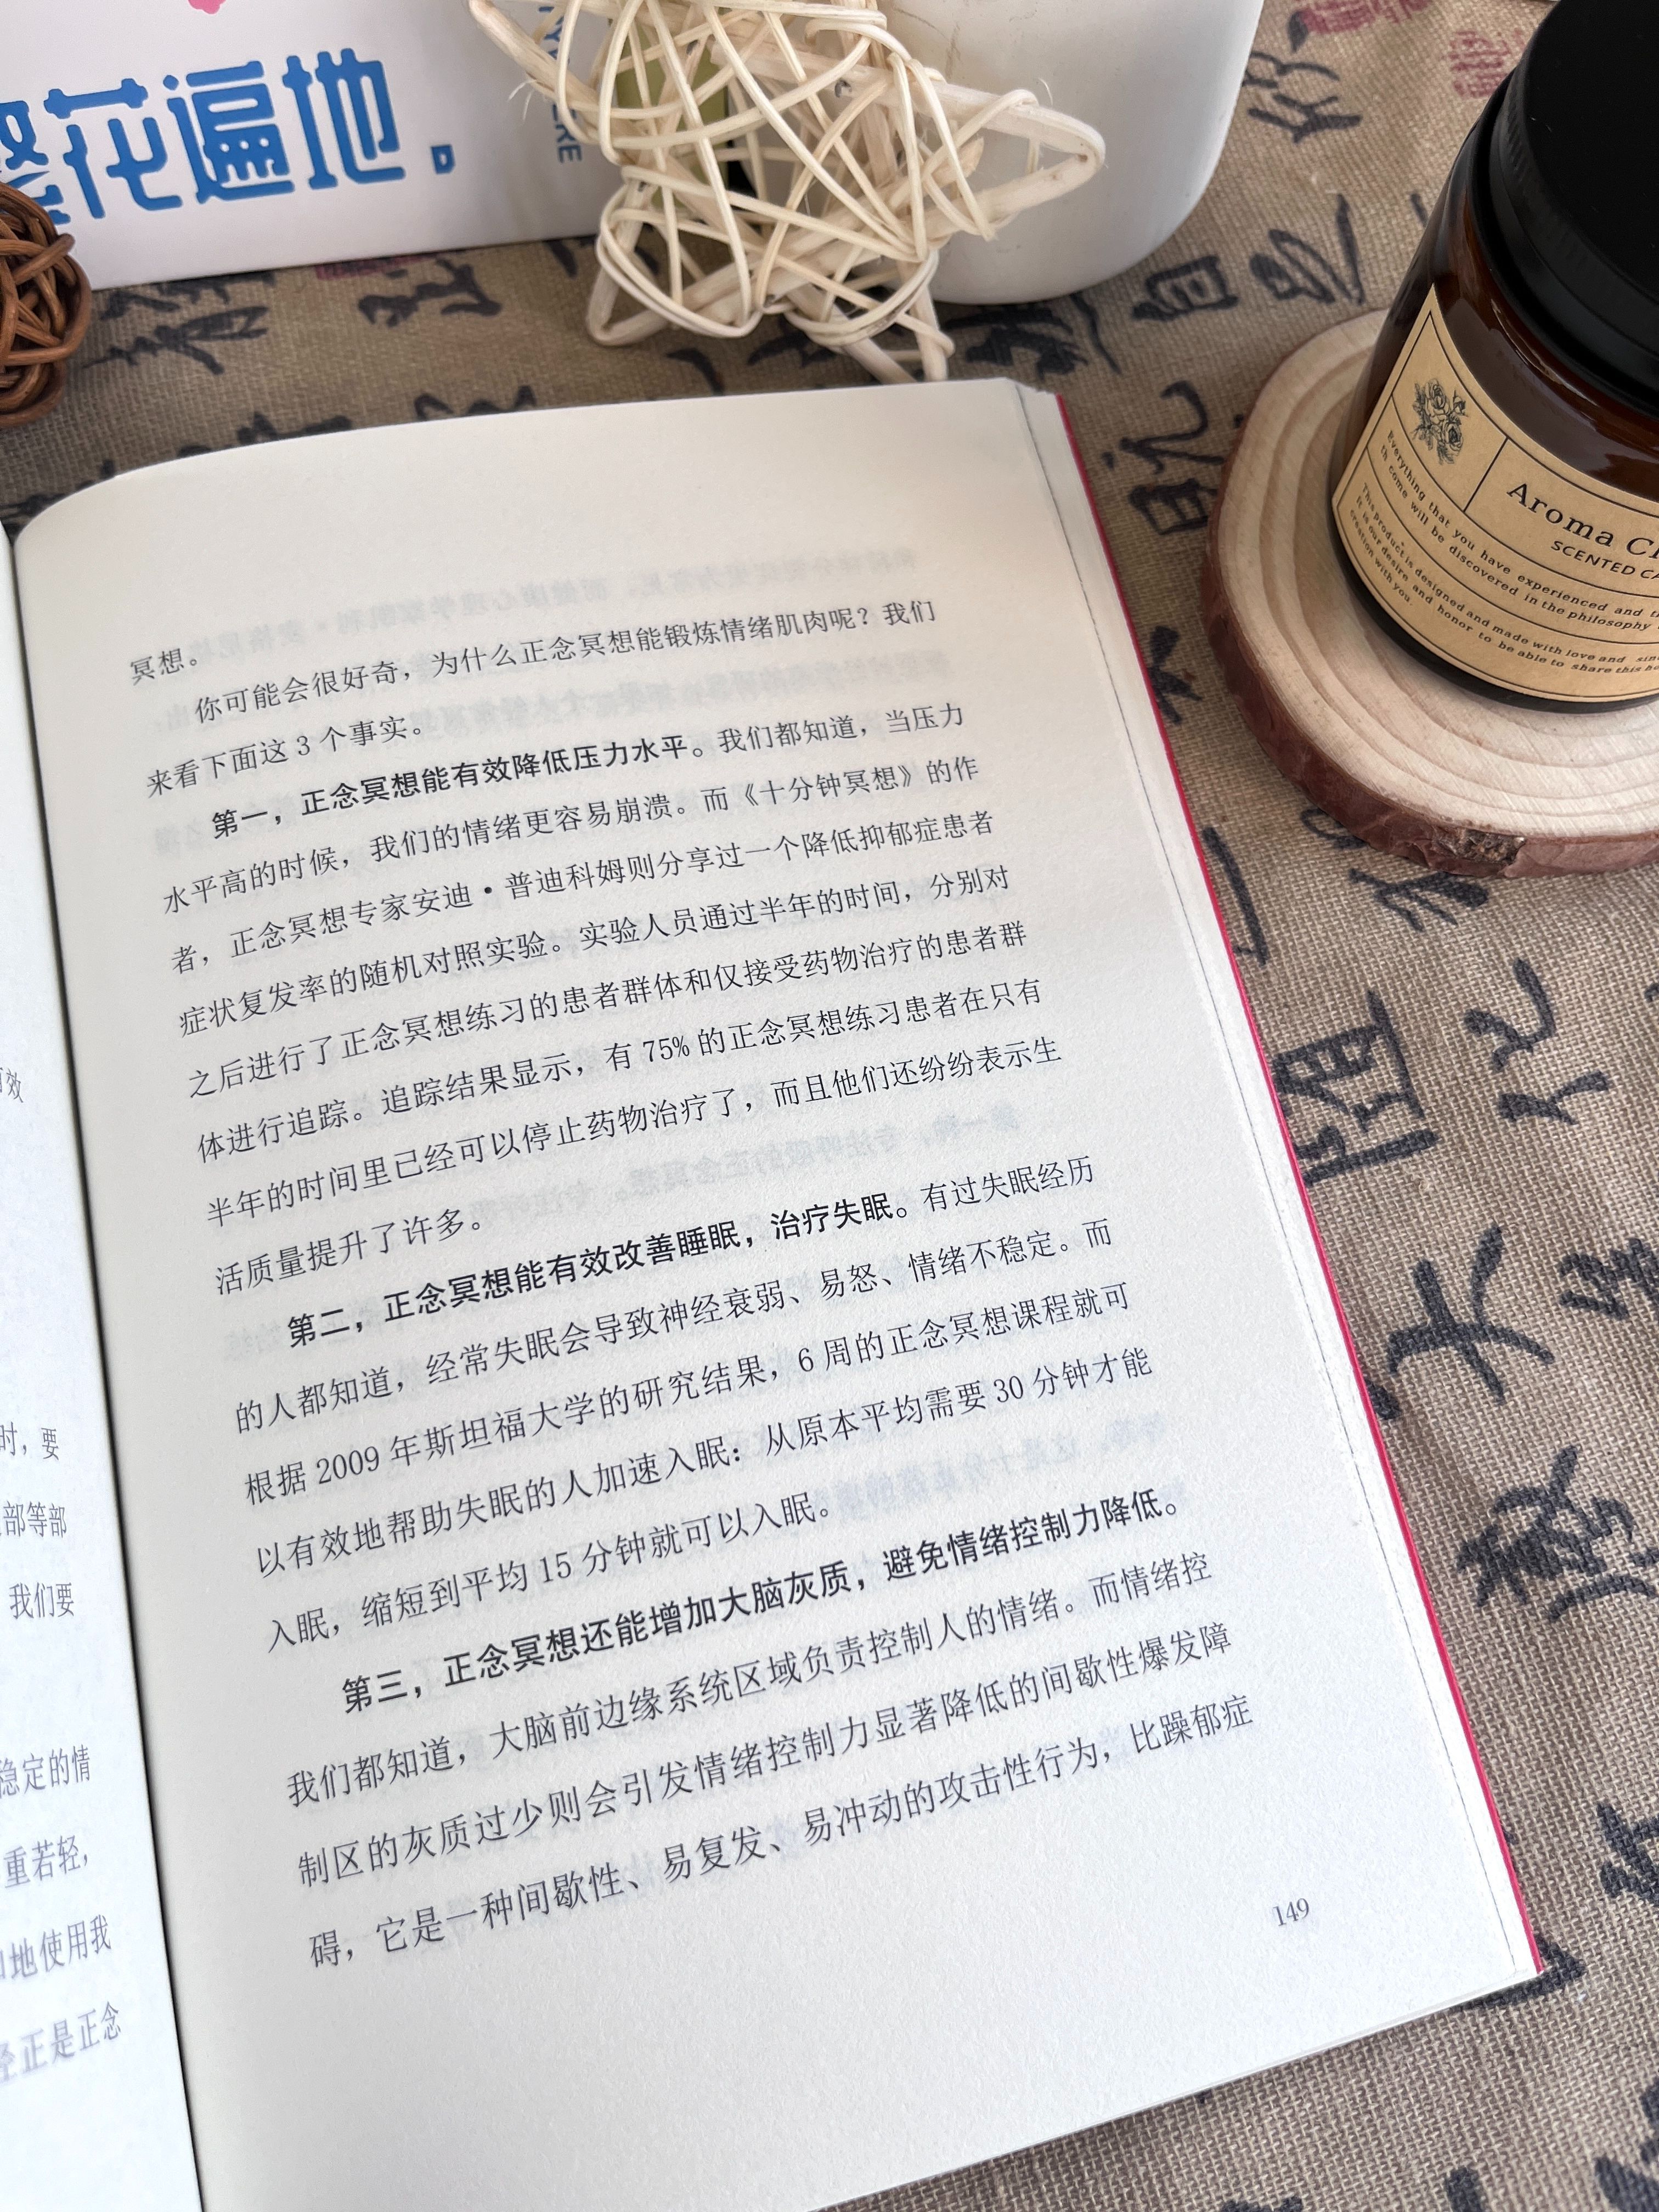 花遍地.
冥想。
你可能会很好奇，为什么正念冥想能锻炼情绪肌肉呢？我们
来看下面这 3 个事实。
第一，正念冥想能有效降低压力水平。我们都知道，当压力
水平高的时候，我们的情绪更容易崩溃。而《十分钟冥想》的作
者，正念冥想专家安迪·普迪科姆则分享过一个降低抑郁症患者
症状复发率的随机对照实验。实验人员通过半年的时间，分别对
之后进行了正念冥想练习的患者群体和仅接受药物治疗的患者群
体进行追踪。追踪结果显示，有 75% 的正念冥想练习患者在只有
半年的时间里已经可以停止药物治疗了，而且他们还纷纷表示生
活质量提升了许多。
第二，正念冥想能有效改善睡眠，治疗失眠。有过失眠经历
的人都知道，经常失眠会导致神经衰弱、易怒、情绪不稳定。而
根据 2009 年斯坦福大学的研究结果，6 周的正念冥想课程就可
以有效地帮助失眠的人加速入眠：从原本平均需要 30 分钟才能
入眠，缩短到平均 15 分钟就可以入眠。
第三，正念冥想还能增加大脑灰质，避免情绪控制力降低。
我们都知道，大脑前边缘系统区域负责控制人的情绪。而情绪控
制区的灰质过少则会引发情绪控制力显著降低的间歇性爆发障
碍，它是一种间歇性、易复发、易冲动的攻击性行为，比躁郁症
149
效
时，要
部等部
我们要
稳定的情
重若轻，
地使用我
正是正念
Aroma
SCENTED
Everything that you have experienced and
to come will be discovered in the philosophy
This product is designed and made with love and
It is our desire and honor to be able to share this
creation with you.